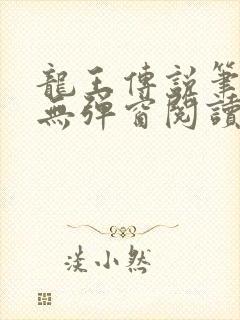 龍王傳說筆
無彈窗閱讀
淡小然